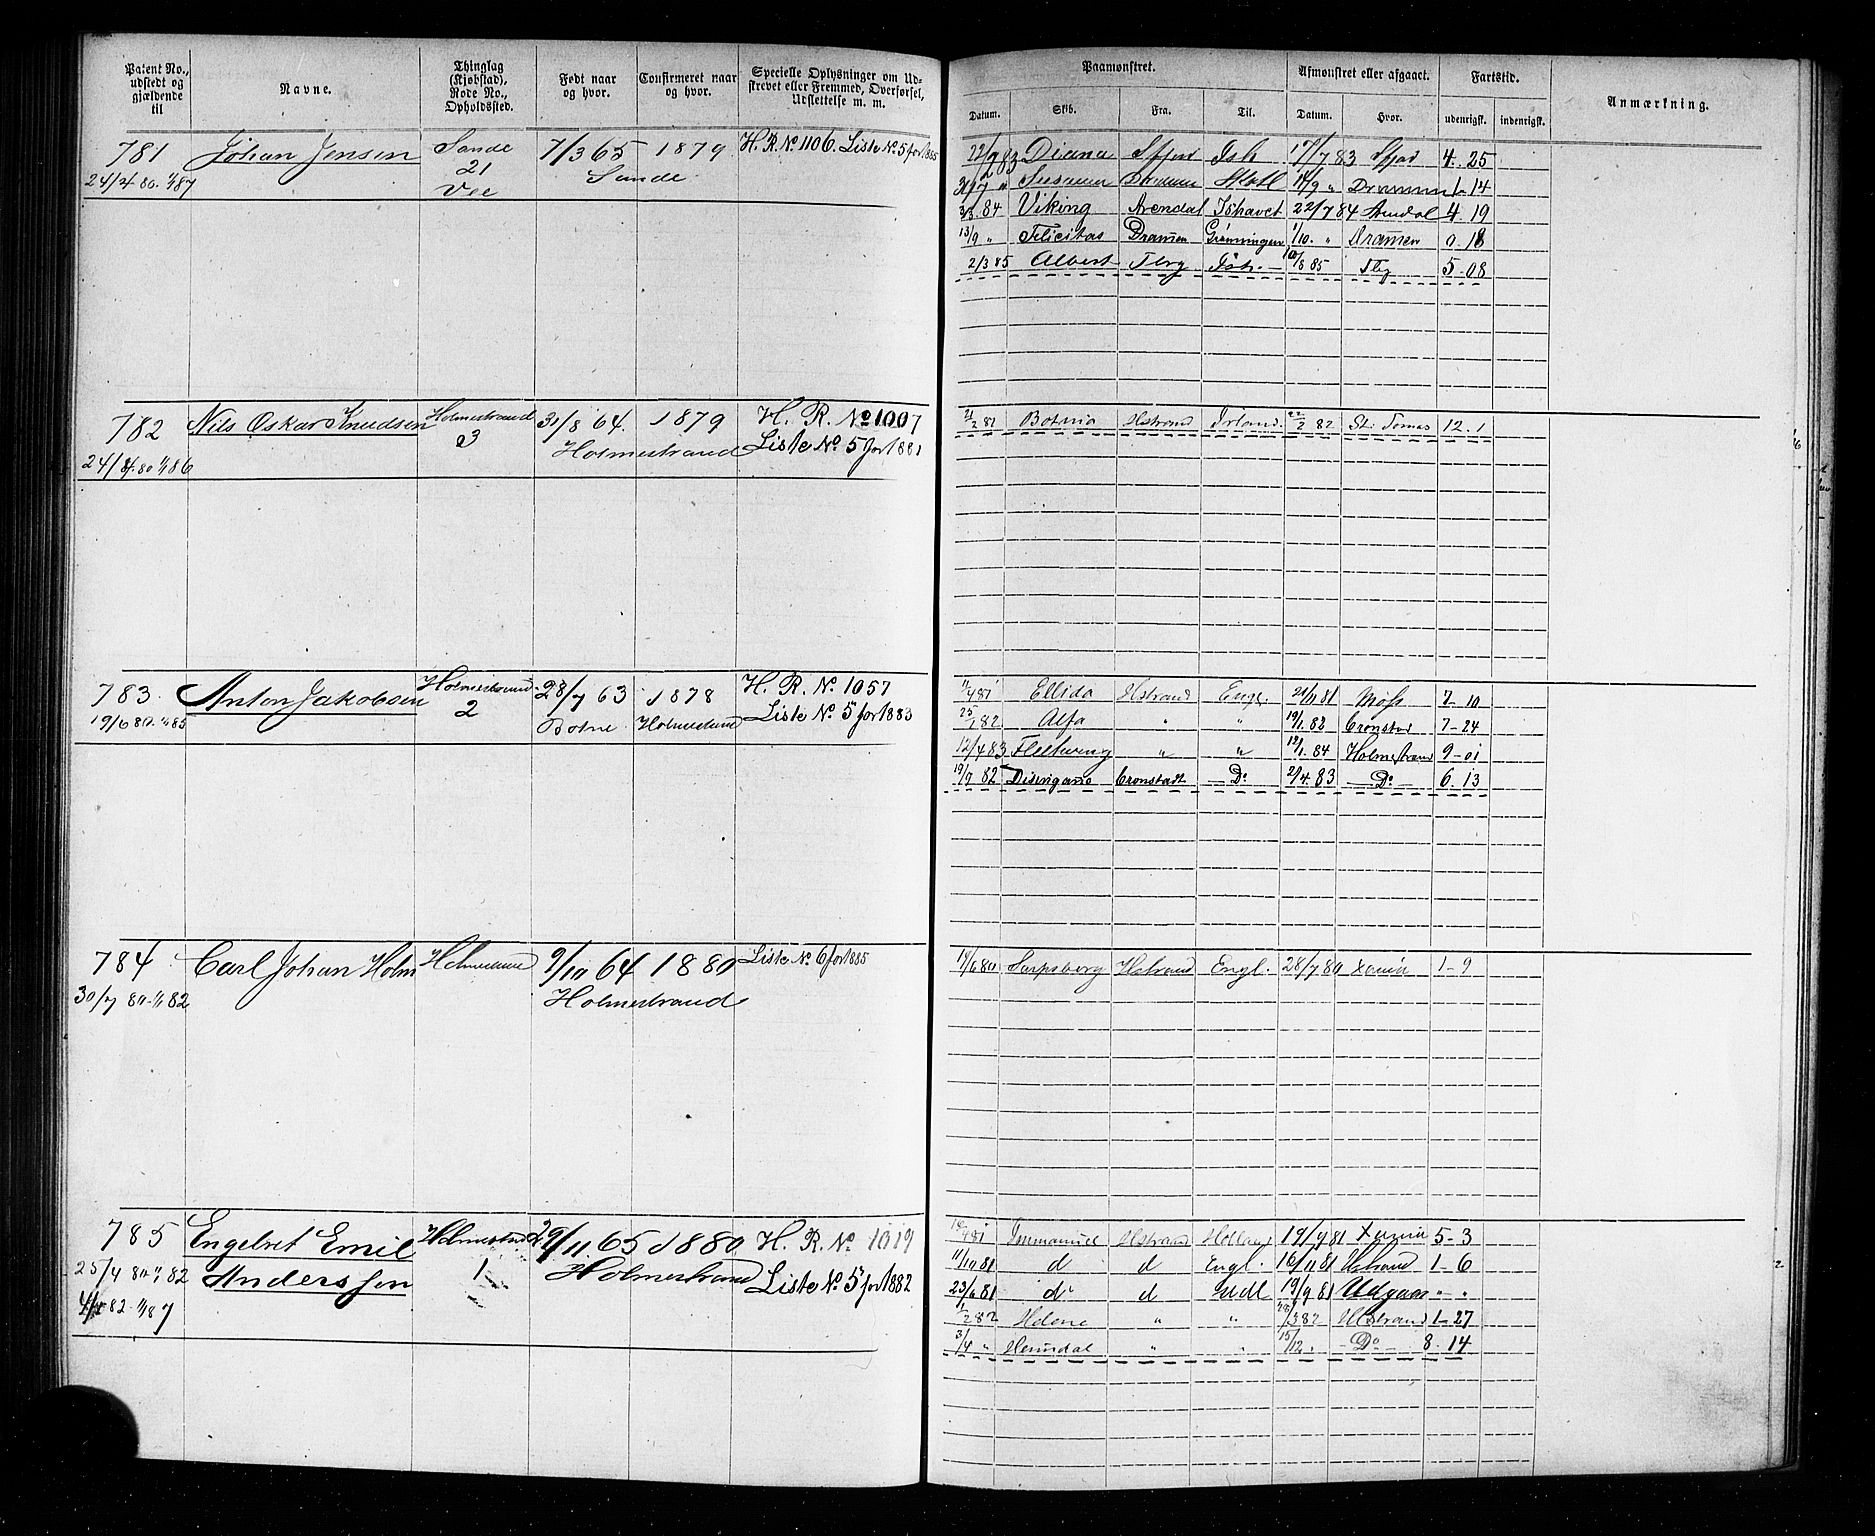 Patent No., udstedt og gjældende til
Navne.
Thinglag (Kjøbstad), Rode No., Opholdssted.
Født naar og hvor.
Confirmeret naar og hvor.
Specielle Oplysninger om Udstrevet eller Fremmed, Overførsel, Udslettelse m. m.
Paamønstret.
Datum. Skib. Fra. Til.
Afmønstret eller afgaaet.
Datum. Hvor.
Fartstid.
udenrigsk. indenrigsk.
Anmærkning.
781 Johan Jensen Sande 7/3 65 1879 H. R. No 1106. Liste No 5 for 1885
24/4 80. 1/1 87 21 Sande
22/2 83 Diana Sfjord Ish 17/7 83 Sfjord 4. 25
Drammen 1. 14
3/3 84 Viking Arendal Ishavet 22/7 84 Arendal 4. 19
13/9 " Felicitas Dramen Grønningen 1/10. " Dramen 0. 18
2/3 85 Albert Tbrg Ish. 10/8 85 Tbg 5-08
782 Nils Oskar Knudsen Holmestrand 31/8 64. 1879 H. R. No 1007
24/4. 80 1/1 86 3 Holmestrand Liste No. 5 for 1881
21/2 82 Botnia Hstrand Irland. 22/2 82 St. Tomas 12. 1
783. Anton Jakobsen Holmestrand 28/7 63 1878 H. R. No. 1057
19/6 80. 1/1 85 2 Botne Holmestrand Liste No. 5 for 1883
11/4 81 Ellida Hstrand Engl. 21/11 81 Moss 7-10
Alfa " " 19/1. 82 Cronstad 7-24
12/4 83 Fleetwing " " 12/1. 84 Holmestrand 9-01
19/9 82 Disengano Cronstadt Do 2/4. 83 Do 6. 13
784 Carl Johan Holm Holmestrand 9/10 64 1880 Liste No 6 for 1885
30/7 80-1/1 82 Holmestrand
19/6 80 Sarpsborg Hstrand Engl. 28/7 80 Xania 1-9
785 Engebret Emil Holmestrand 29/11 65 1880 H. R. No. 1019
25/4 80-1/1 82 Anderssen 1 Holmestrand Liste No. 5 for 1882
4/4 82-1/1 87
Immanuel Hstrand Holland 19/9 81 Xania 5-3
11/10 81 d d Engl. 16/11 81 Hstrand 1-6
23/6 81 do d Udl 19/9 81 Udgaar " "
Helene " " Hstrand 1-27
3/4 " Heimdal " " 15/12. Do 8. 14